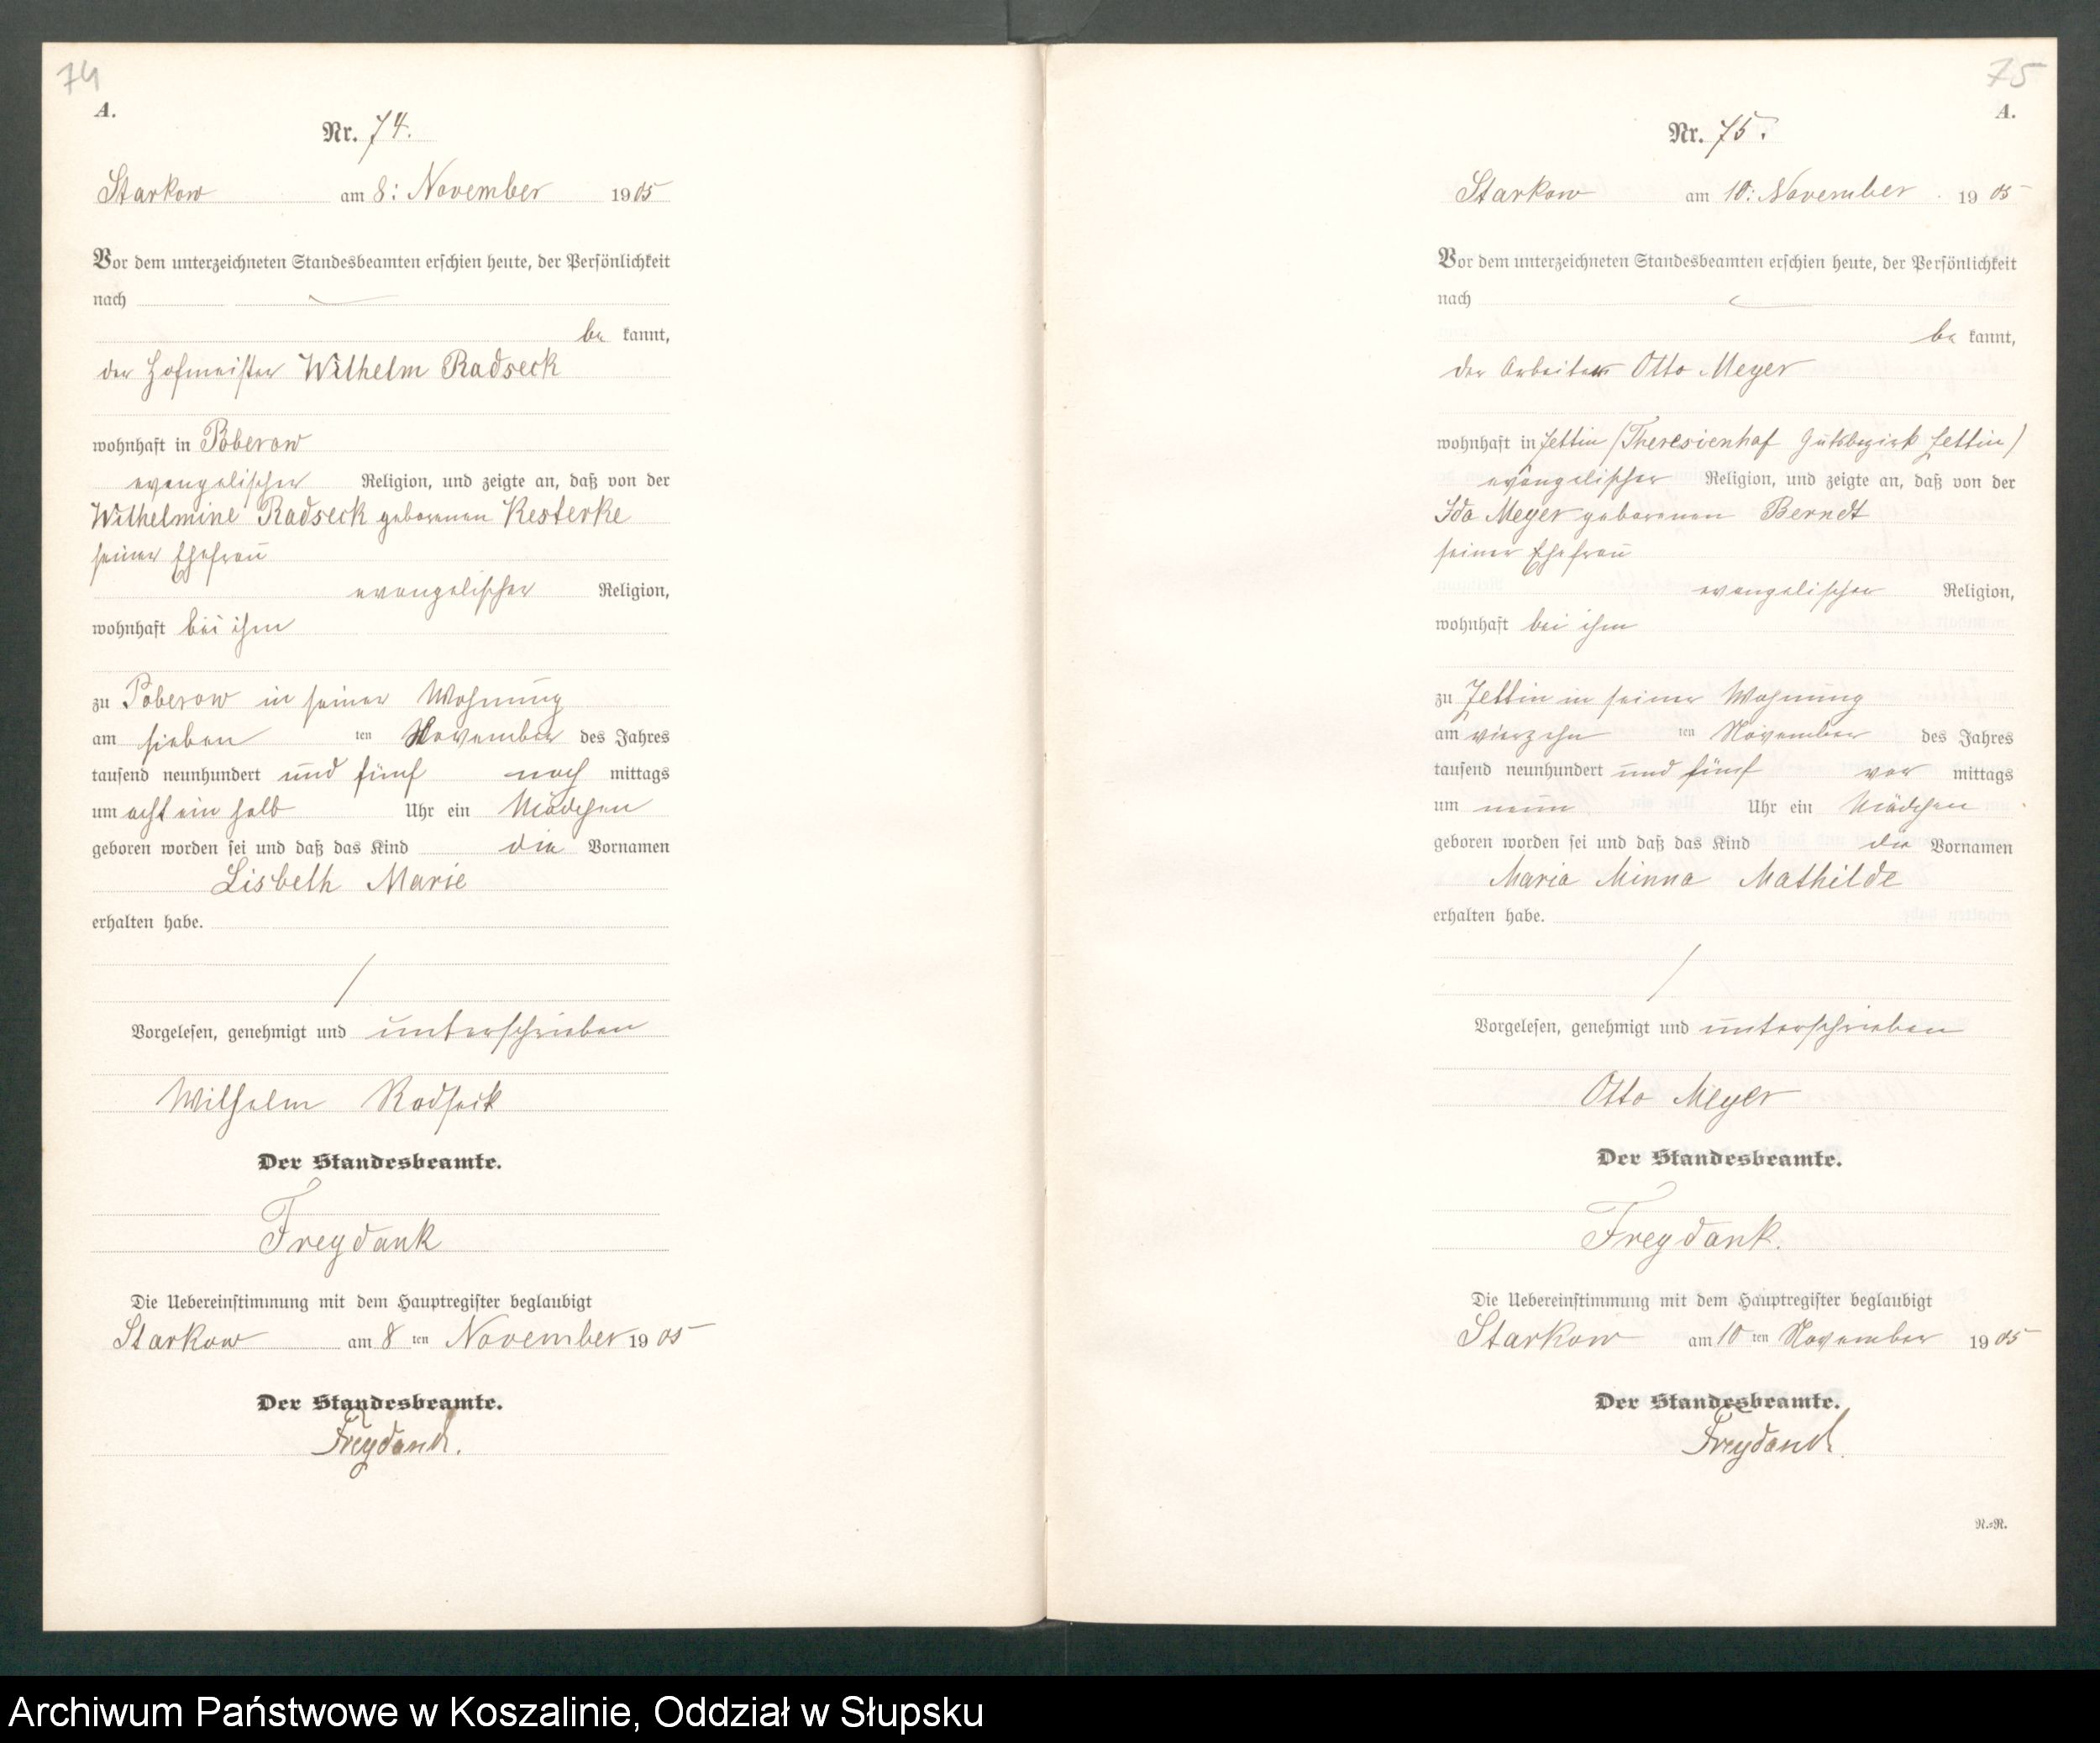 74
A.
Nr. 74.
Starkow am 8: November 1905
Vor dem unterzeichneten Standesbeamten erschien heute, der Persönlichkeit
nach
be kannt,
der Hofmeister Wilhelm Radseck
wohnhaft in Poberow
evangelischer Religion, und zeigte an, daß von der
Wilhelmine Radseck geborenen Kesterke
seiner Ehefrau
evangelischer Religion,
wohnhaft bei ihm
zu Poberow in seiner Wohnung
am sieben ten November des Jahres
tausend neunhundert und fünf nach mittags
um acht ein halb Uhr ein Mädchen
geboren worden sei und daß das Kind die Vornamen
Lisbeth Marie
erhalten habe.
Vorgelesen, genehmigt und unterschrieben
Wilhelm Radseck
Der Standesbeamte.
Freydank
Die Uebereinstimmung mit dem Hauptregister beglaubigt
Starkow am 8 ten November 1905
Der Standesbeamte.
Freydank.
75
A.
Nr. 75.
Starkow am 10: November 1905
Vor dem unterzeichneten Standesbeamten erschien heute, der Persönlichkeit
nach
be kannt,
der Arbeiter Otto Meyer
wohnhaft in Zettin (Theresienhof Gutsbezirk Zettin)
evangelischer Religion, und zeigte an, daß von der
Ida Meyer geborenen Berndt
seiner Ehefrau
evangelischer Religion,
wohnhaft bei ihm
zu Zettin in seiner Wohnung
am vierzehn ten November des Jahres
tausend neunhundert und fünf vor mittags
um neun Uhr ein Mädchen
geboren worden sei und daß das Kind die Vornamen
Maria Minna Mathilde
erhalten habe.
Vorgelesen, genehmigt und unterschrieben
Otto Meyer
Der Standesbeamte.
Freydank.
Die Uebereinstimmung mit dem Hauptregister beglaubigt
Starkow am 10 ten November 1905
Der Standesbeamte.
Freydank.
R.=R.
Archiwum Państwowe w Koszalinie, Oddział w Słupsku